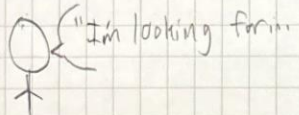 "I'm looking for...